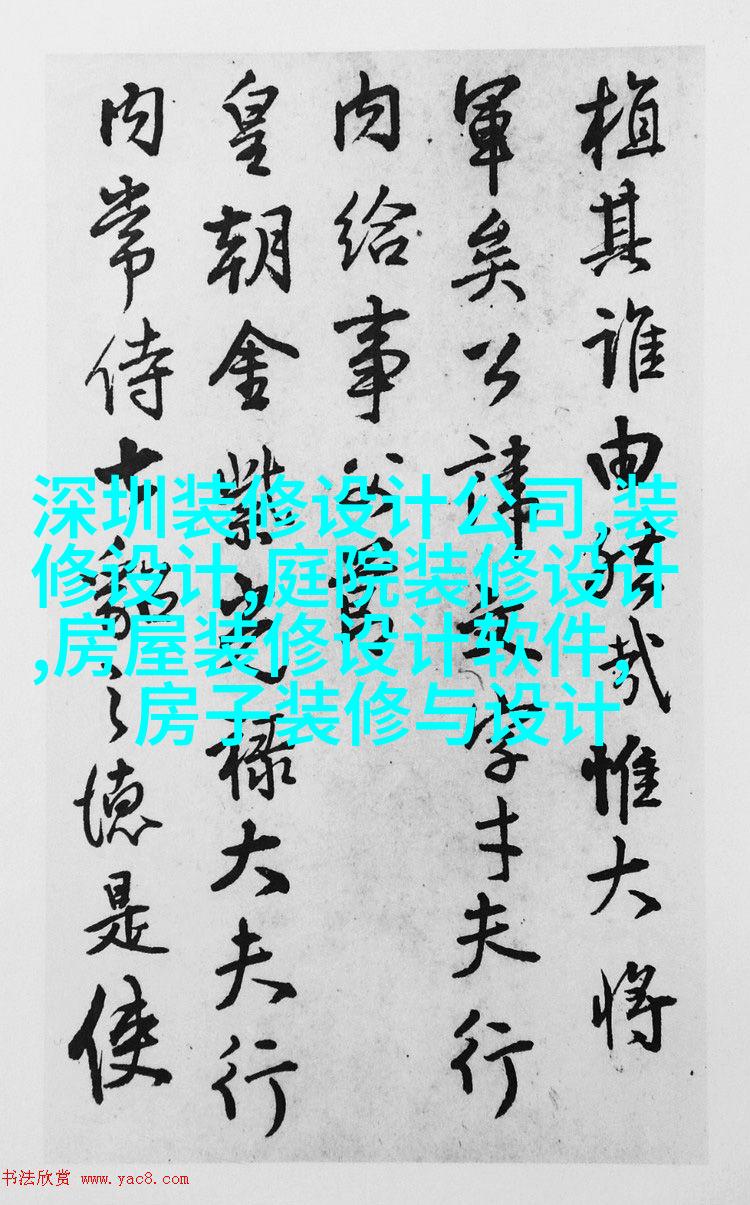 植其誰由哉惟大將
軍矣公諱文字才夫行
内給事
皇朝金紫光祿大夫行
内常侍之德是使
深圳装修设计公司,装
修设计,庭院装修设计
,房屋装修设计软件,
房子装修与设计
书法欣赏 www.yac8.com